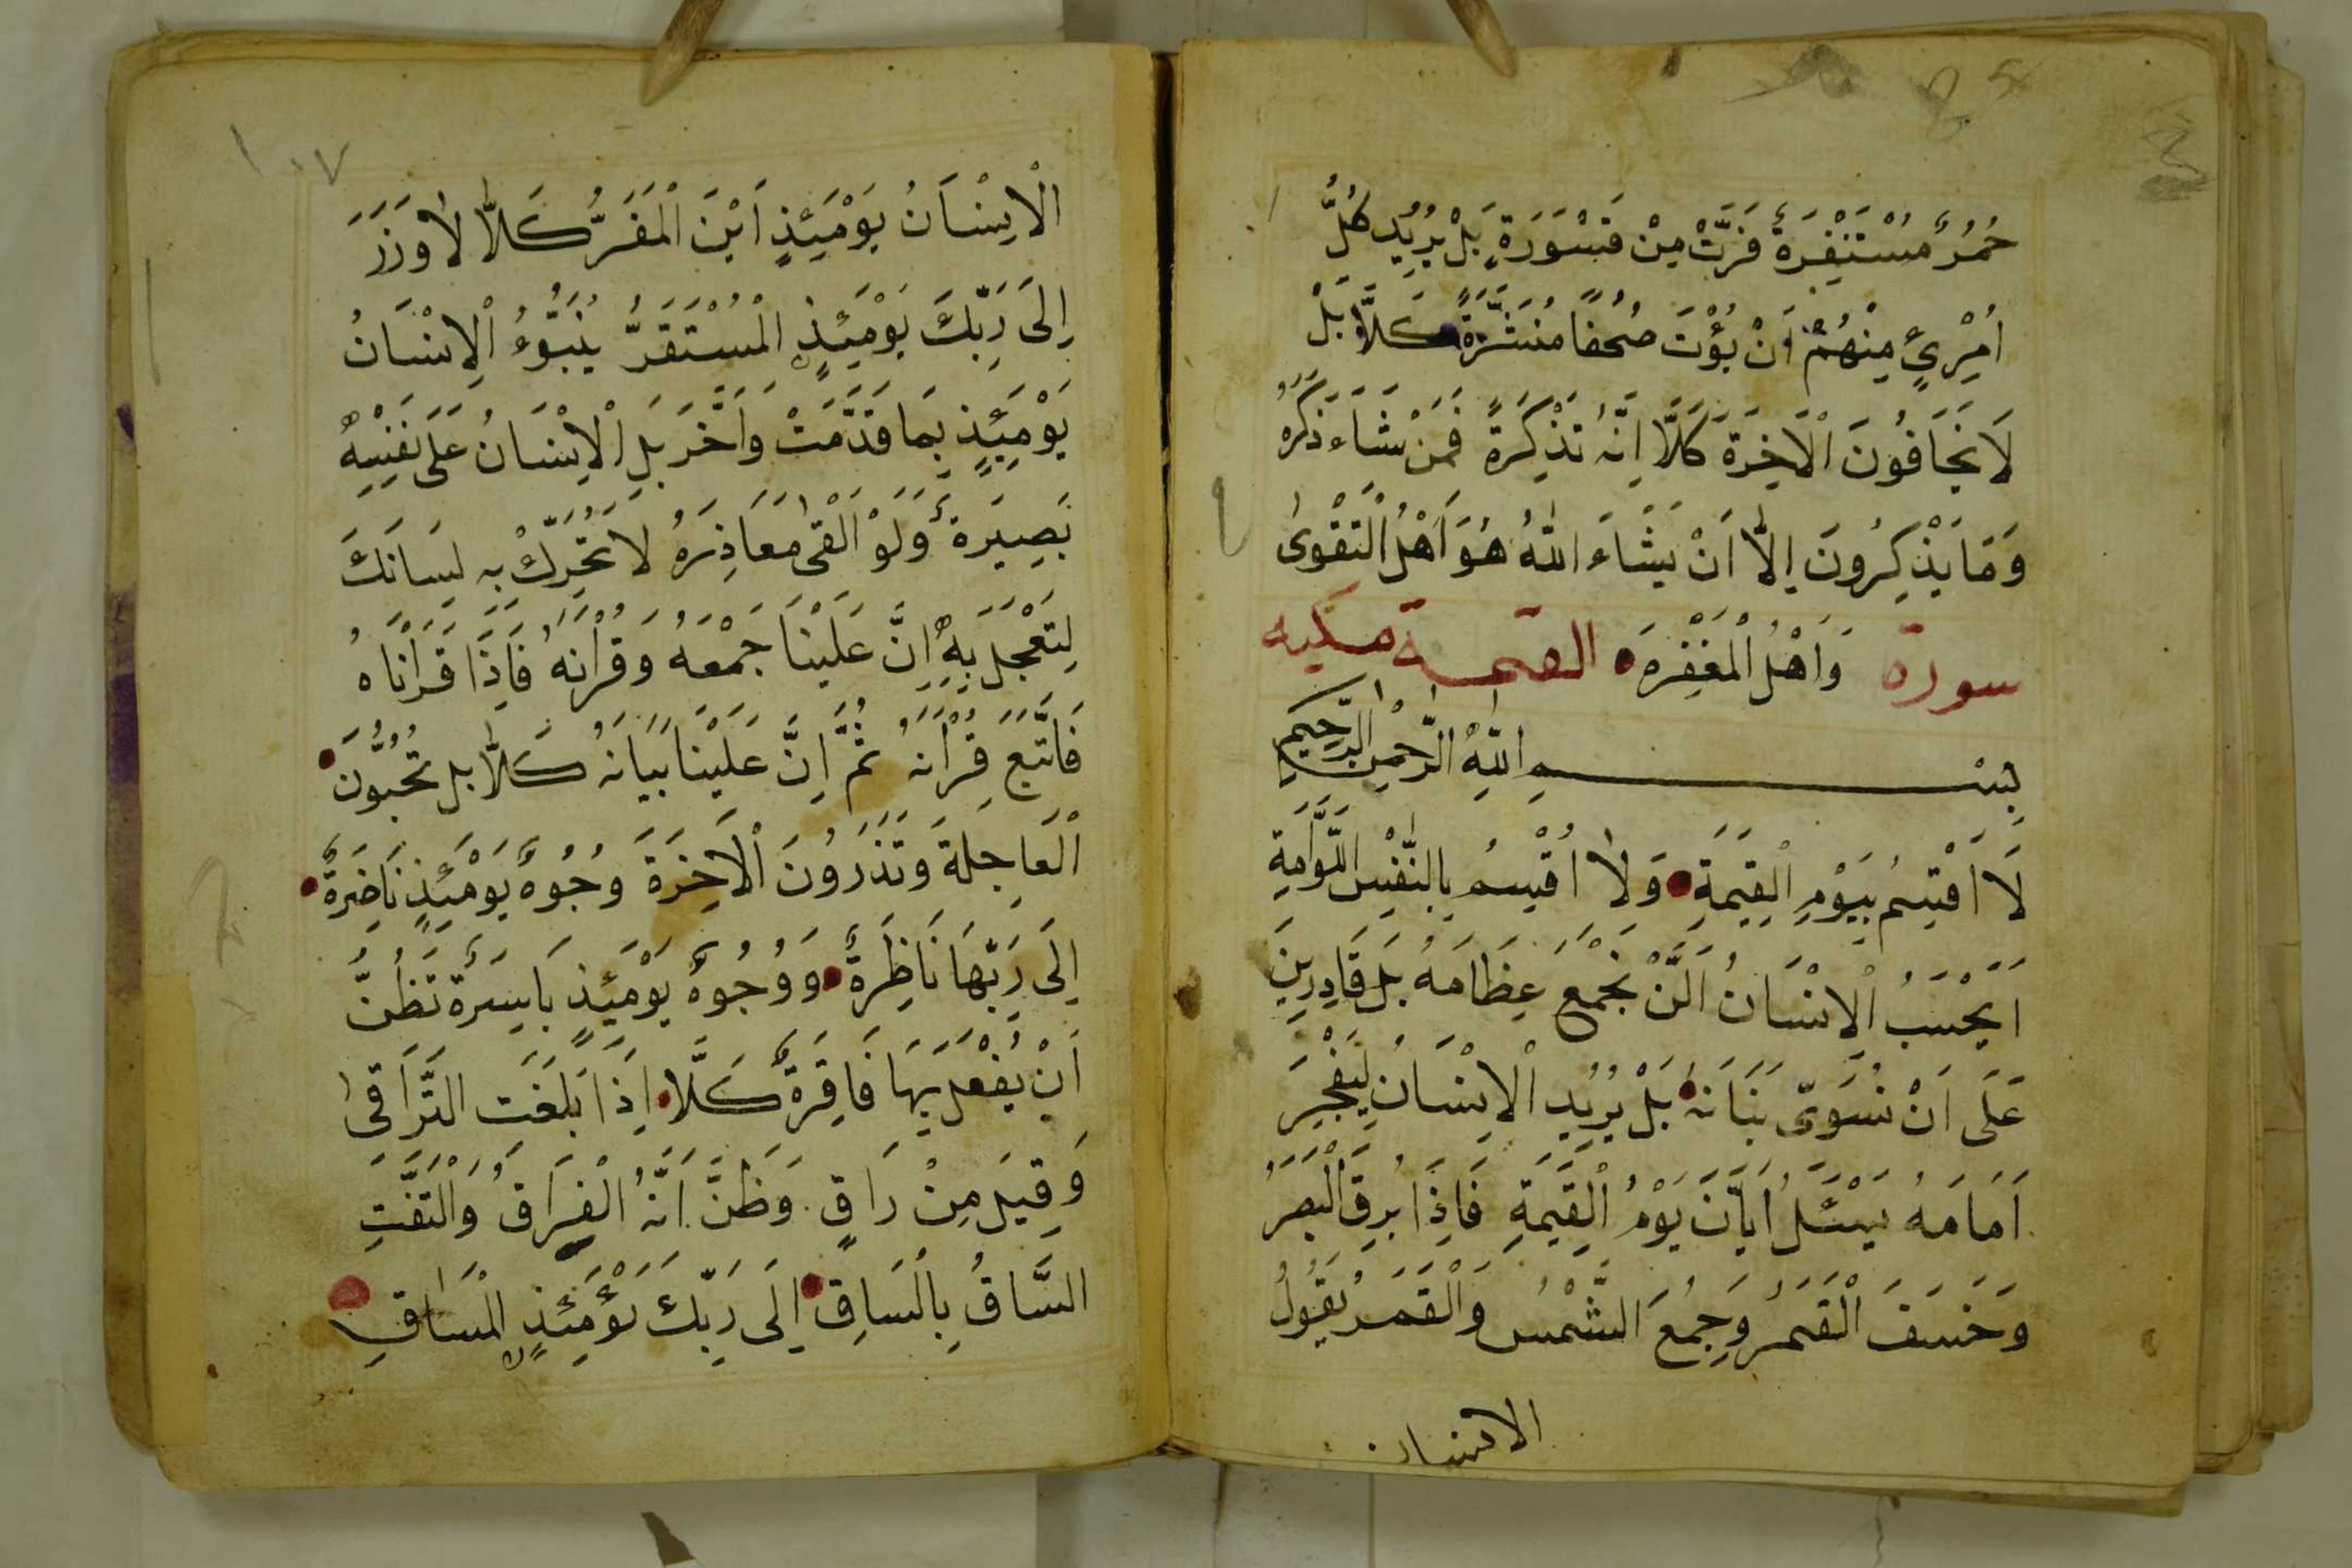 حُمُرٌ مُسْتَنْفِرَةٌ فَرَّتْ مِنْ قَسْوَرَةٍ بَلْ يُرِيْدُ كُلُّ
امْرِئٍ مِنْهُمْ اَنْ يُؤْتَ صُحُفًا مُنَشَّرَةً كَلَّا بَلْ
لَا يَخَافُونَ الْاَخِرَةَ كَلَّا اِنَّهُ تَذْكِرَةً فَمَنْ شَاءَ ذَكَرَهُ
وَمَا يَذْكِرُونَ اِلَّا اَنْ يَشَاءَ اللّٰهُ هُوَ اَهْلُ الْتَقْوٰى
وَاَهْلُ الْمَغْفِرَه سورة القيمة مكيه
بِسْمِ اللّٰهِ الرَّحْمٰنِ الرَّحِيْمِ
لَا اُقْسِمُ بِيَوْمِ الْقِيَمَةِ وَلَا اُقْسِمُ بِالنَّفْسِ اللَّوَّامَةِ
اَيَحْسَبُ الْاِنْسَانُ اَلَّنْ نَجْمَعَ عِظَامَهُ بَلَ قَادِرِينَ
عَلَى اَنْ نُسَوِّىَ بَنَانَهُ بَلْ يُرِيْدُ الْاِنْسَانُ لِيَفْجُرَ
اَمَامَهُ يَسْئَلُ اَيَّانَ يَوْمُ الْقِيَمَةِ فَاِذَا بَرِقَ الْبَصَرُ
وَخَسَفَ الْقَمَرُ وَجُمِعَ الشَّمْسُ وَالْقَمَرُ يَقُوْلُ
الانسان
١٠٧
الْاِنْسَانُ يَوْمَئِذٍ اَيْنَ الْمَفَرُّ كَلَّا لَا وَزَرَ
اِلَى رَبِّكَ يَوْمَئِذٍ الْمُسْتَقَرُّ يُنَبَّؤُءُ الْاِنْسَانُ
يَوْمَئِذٍ بِمَا قَدَّمَتْ وَاَخَّرَ بَلِ الْاِنْسَانُ عَلَى نَفْسِهِ
بَصِيرَةٌ وَلَوْ اَلْقٰى مَعَاذِرَهُ لَا تُحَرِّكْ بِهِ لِسَانَكَ
لِتَعْجَلَ بِهِ اِنَّ عَلَيْنَا جَمْعَهُ وَقُرْانَهُ فَاِذَا قَرَانَاهُ
فَاتَّبِعَ قُرْانَهُ ثُمَّ اِنَّ عَلَيْنَا بَيَانَهُ كَلَّا بل تُحُبُّوْنَ
الْعَاجِلَةَ وَتَذَرُونَ الْاَخِرَةَ وُجُوهٌ يَوْمَئِذٍ نَاضِرَةٌ
اِلَى رَبِّهَا نَاظِرَةٌ وَوُجُوهٌ يَوْمَئِذٍ بَاسِرَةٌ تَظُنُّ
اَنْ يُفْعَلَ بِهَا فَاقِرَةٌ كَلَّا اِذَا بَلَغَتِ التَّرَاقِىَ
وَقِيلَ مِنْ رَاقٍ وَظَنَّ اَنَّهُ الْفِرَاقُ وَالْتَفَّتِ
السَّاقُ بِالسَاقِ اِلَى رَبِّكَ يَوْمَئِذٍ الْمَسَاقِ